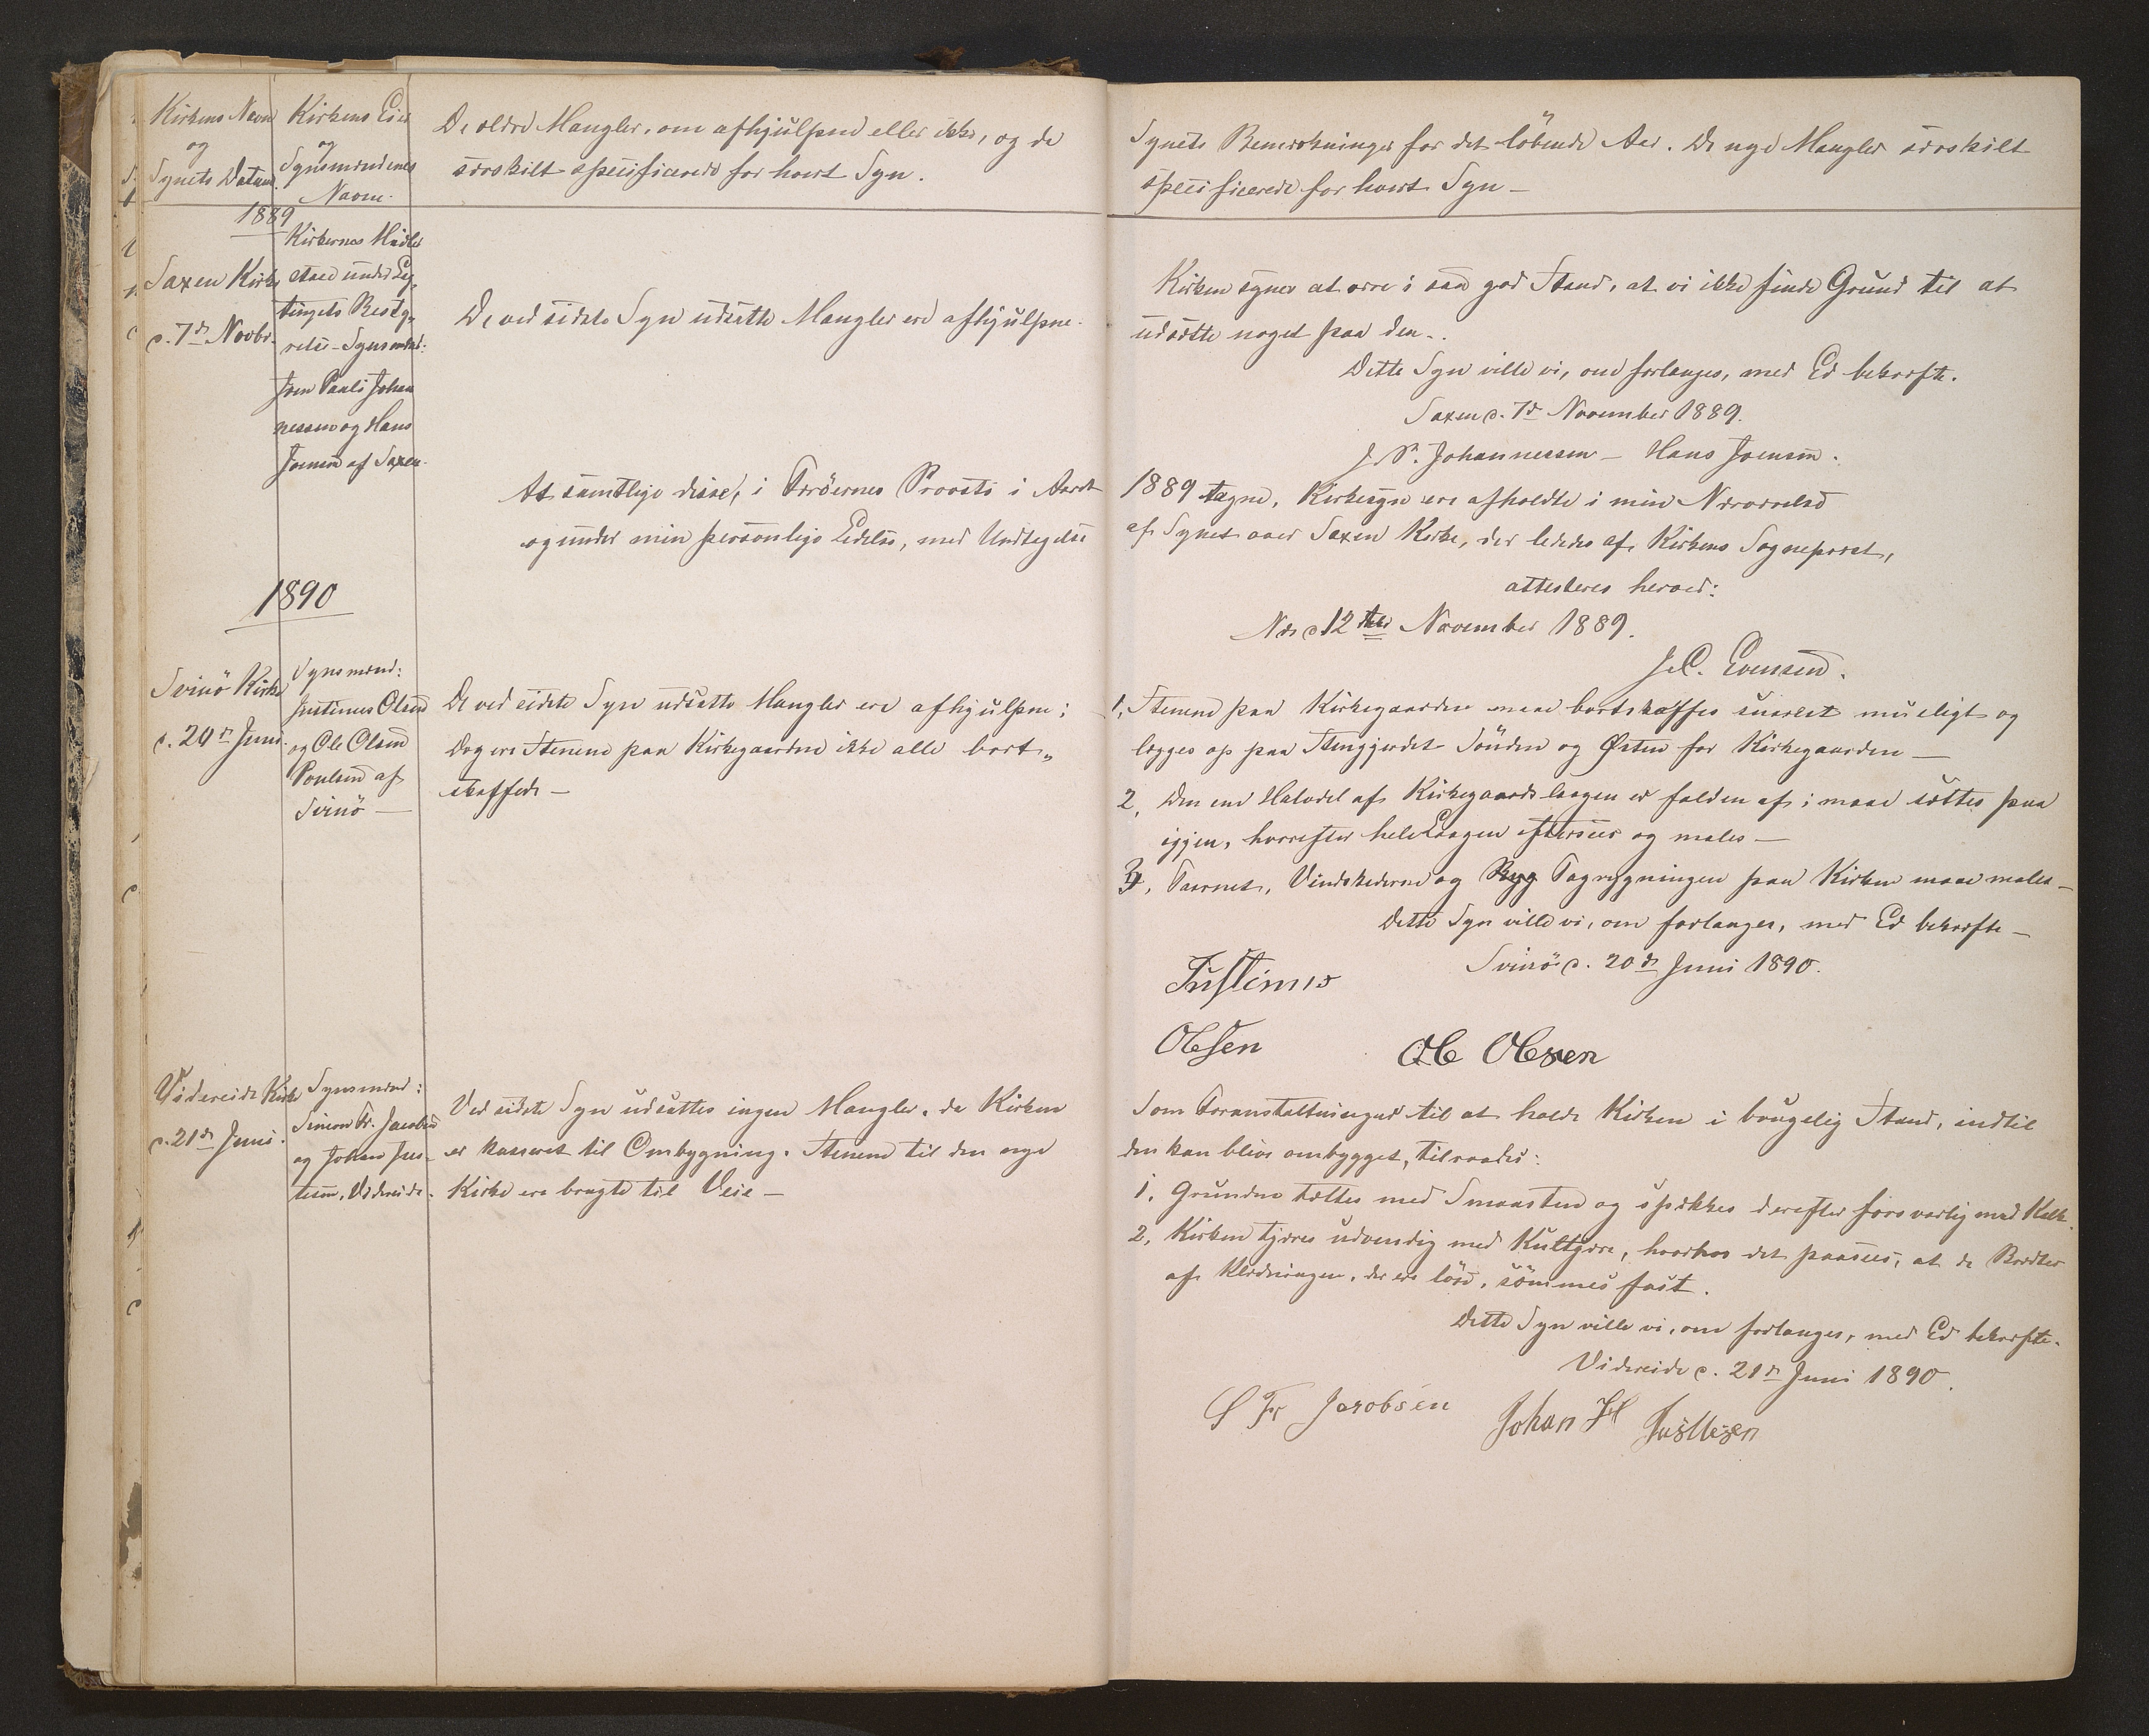 Kirkens Navn
og
Synets Datum.
Kirkens Eier
og
Synsmændenes
Navne.
De ældre Mangler, om afhjulpne eller ikke, og de
særskilt specificerede for hvert Syn.
1889
Saxen Kirke
d. 7de Novbr.
Kirkernes Midler
staae under Lag„
tingets Besty„
relse – Synsmænd:
Joen Pauli Johan
nessen og Hans
Joensen af Saxen.
De ved sidste Syn udsatte Mangler ere afhjulpne.
At samtlige disse, i Færöernes Provsti i Aaret
og under min personlige Ledelse, med Undtagelse
1890
Svinö Kirke
d. 20de Juni.
Synsmænd:
Justinus Olsen
og Ole Olsen
Poulsen af
Svinö —
De ved sidste Syn udsatte Mangler ere afhjulpne;
dog ere Stenene paa Kirkegaarden ikke alle bort„
skaffede —
Videreide Kirke
d. 21de Juni.
Synsmænd:
Simon Fr. Jacobsen
og Johan Jus-
tesen, Videreide.
Ved sidste Syn udsattes ingen Mangler, da Kirken
er kasseret til Ombygning. Stenene til den nye
Kirke ere bragte til Veie —
Synets Bemærkninger for det löbende Aar. De nye Mangler særskilt
specificerede for hvert Syn —
Kirken synes at være i saa god Stand, at vi ikke finde Grund til at
udsætte noget paa den.
Dette Syn ville vi, om forlanges, med Ed bekræfte.
Saxen d. 7de November 1889.
J. P. Johannessen — Hans Joensen.
1889 tagne, Kirkesyn ere afholdte i min Nærværelse
af Synet over Saxen Kirke, der lededes af Kirkens Sognepræst,
attesteres herved:
Næs d 12te November 1889.
J. C. Evensen.
1, Stenene paa Kirkegaarden maae bortskaffes snarest mueligt og
lægges op paa Stengjerdet Sönden og Østen for Kirkegaarden —
2, Den ene Halvdel af Kirkegaardslaagen er falden af; maae sættes paa
igjen, hvorefter hele Laagen eftersees og males —
3, Taarnet, Vindskederne og Ryg Tagrygningen paa Kirken maae males —
Dette Syn ville vi, om forlanges, med Ed bekræfte —
Svinö d. 20de Juni 1890.
Justinus
Olsen
Ole Olesen
Som Foranstaltninger til at holde Kirken i brugelig Stand, indtil
den kan blive ombygget, tilraades:
1, Grunden tættes med Smaasten og spækkes derefter forsvarlig med Kalk.
2, Kirken tjæres udvendig med Kultjære, hvorhos det paasees, at de Brædter
af Klædningen, der ere löse, sömmes fast.
Dette Syn ville vi, om forlanges, med Ed bekræfte.
Videreide d. 21de Juni 1890.
S Fr Jacobsen
Johan H Justesen